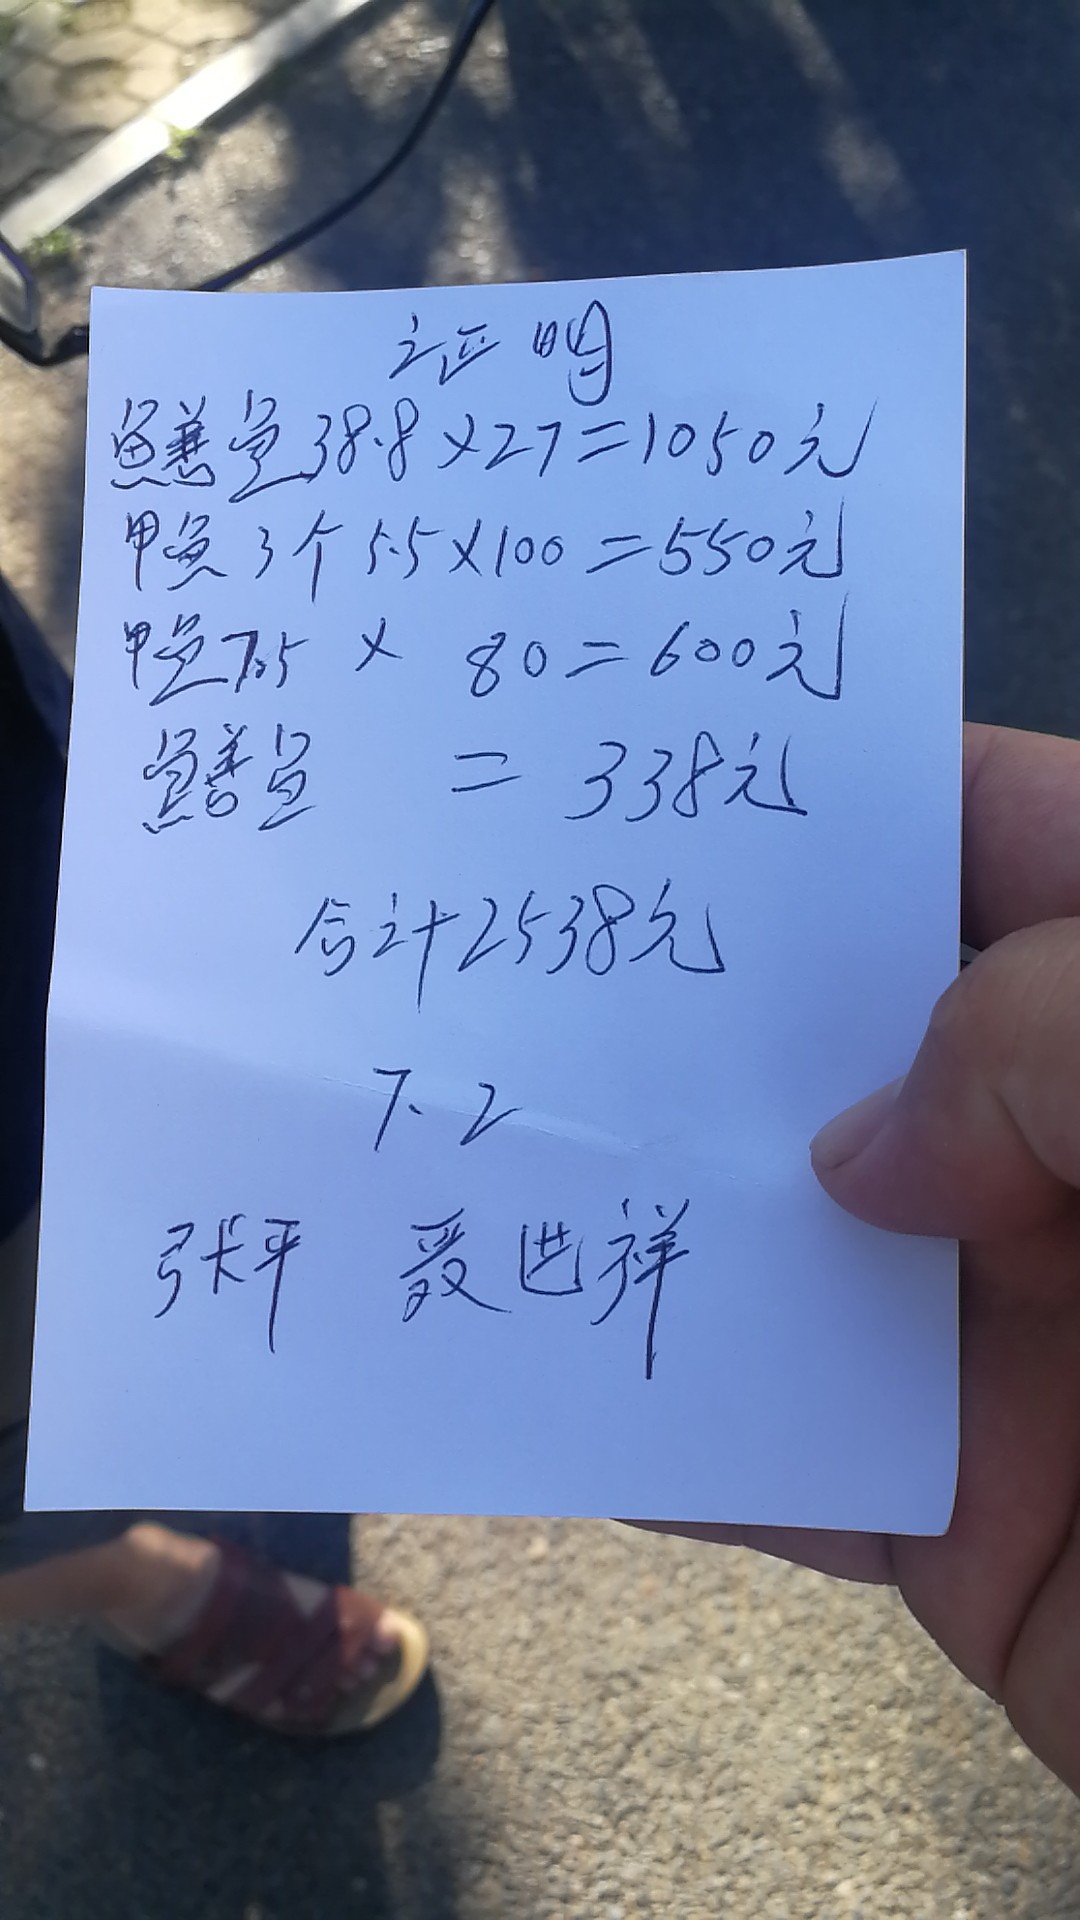 证明
鳝鱼38.8×27=1050元
甲鱼3个5.5×100=550元
甲鱼7.5 × 80=600元
鳝鱼 = 338元
合计2538元
7.2
张平 聂进祥